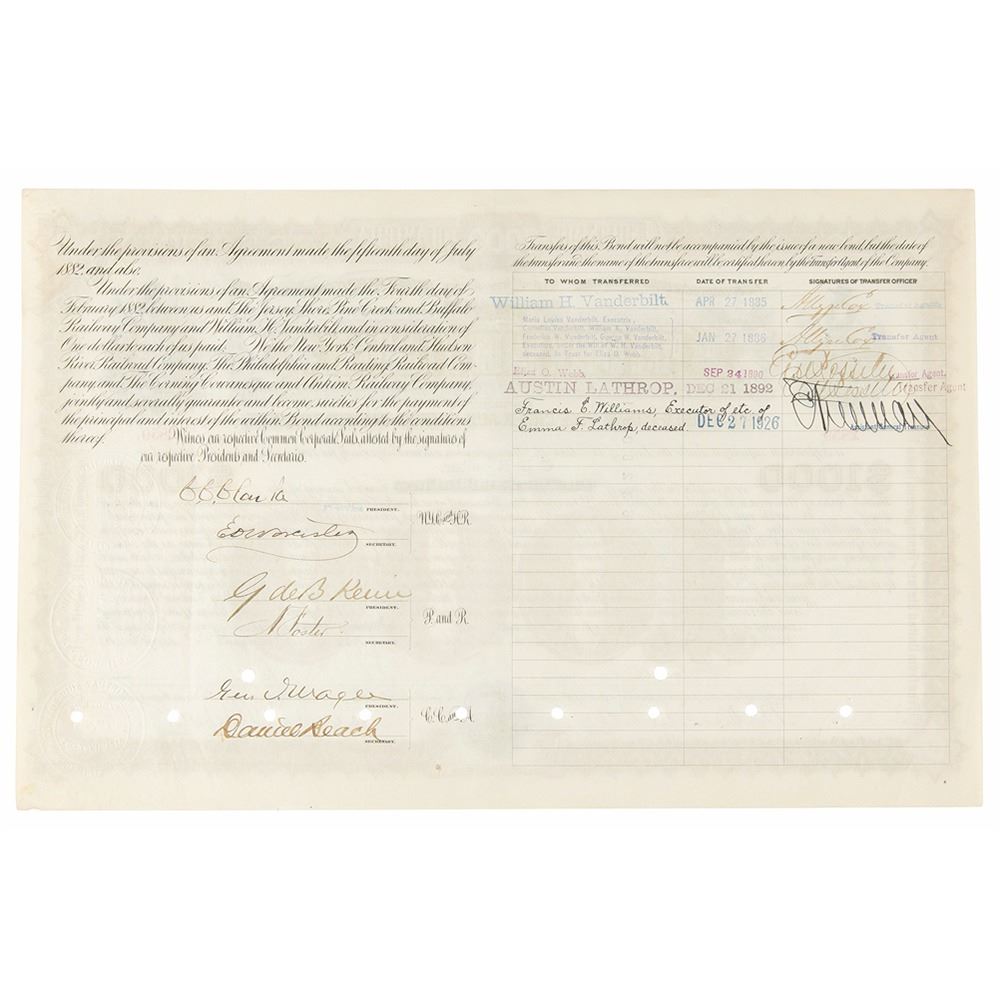 Under the provisions of an Agreement made the fifteenth day of July
1882, and also:
Under the provisions of an Agreement made the Fourth day of
February 1882, between us and The Jersey Shore, Pine Creek and Buffalo
Railway Company and William H. Vanderbilt, and in consideration of
One dollar to each of us paid. We the New York Central and Hudson
River Railroad Company, The Philadelphia and Reading Railroad Com-
pany, and The Corning Cowanesque and Antrim Railway Company,
jointly and severally guarantee and become sureties for the payment of
the principal and interest of the within Bond according to the conditions
thereof.
Witness our respective Common Corporate Seals, attested by the signature of
our respective Presidents and Secretaries.
PRESIDENT.
N.Y.C. and H.R.
SECRETARY.
G de B Keim
PRESIDENT.
P. and R.
SECRETARY.
PRESIDENT.
C. C. and A.
Daniel Beach
SECRETARY.
Transfers of this Bond will not be accompanied by the issue of a new bond, but the date of
the transfer and the name of the transferee will be certified hereon by the Transfer Agent of the Company.
TO WHOM TRANSFERRED DATE OF TRANSFER SIGNATURES OF TRANSFER OFFICER
William H. Vanderbilt. APR 27 1885
Maria Louisa Vanderbilt, Executrix,
Cornelius Vanderbilt, William K. Vanderbilt,
Frederick W. Vanderbilt, George W. Vanderbilt,
Executors, under the Will of W. H. Vanderbilt,
deceased, in Trust for Eliza O. Webb.
JAN 27 1886 Transfer Agent
Eliza O. Webb. SEP 24 1890 Transfer Agent,
AUSTIN LATHROP, DEC 21 1892 Transfer Agent
Francis E. Williams, Executor of etc. of
Emma F. Lathrop, deceased. DEC 27 1926
$1000